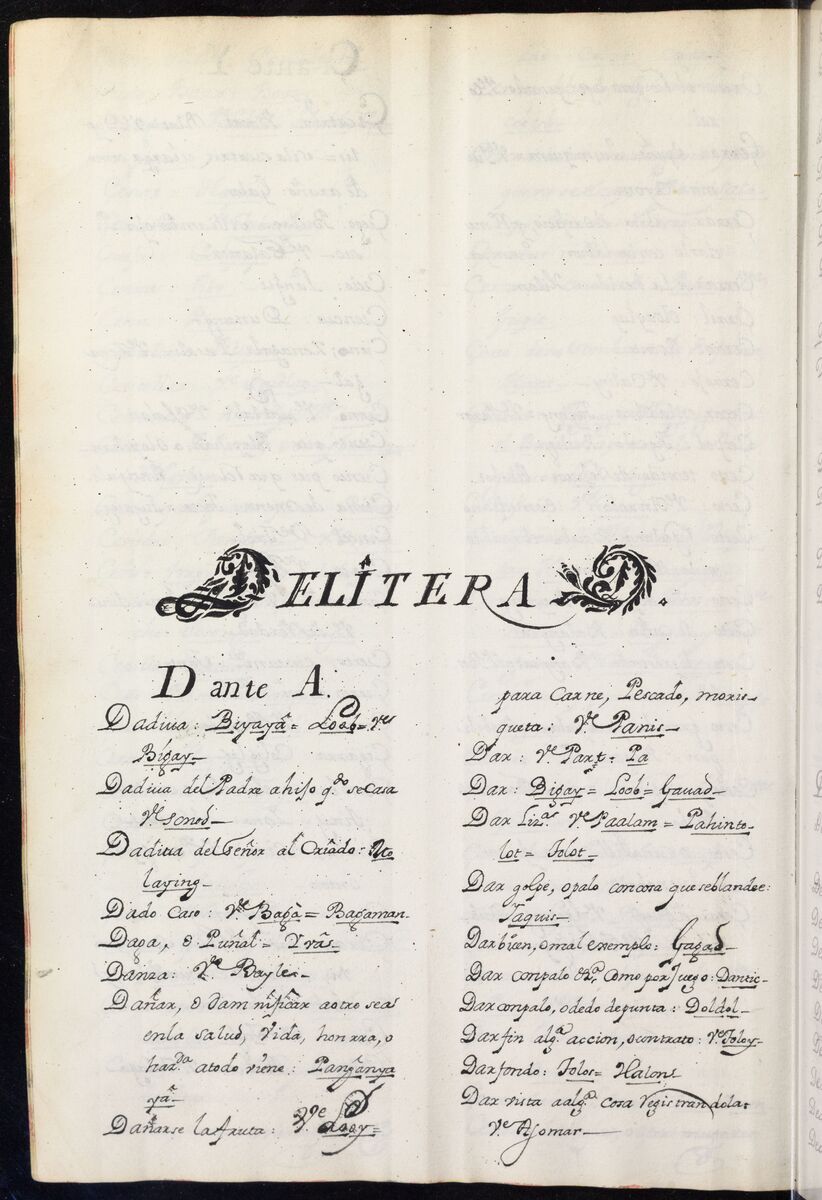 DELITERA D.
Dante A.
Dadiua: Biyayâ= Loób= Ve
Bigay_
Dadiua del Padre a hijo q.do se casa
Ve sonod_
Dadiua del Señor al Criado:
laying_
Dado Caso: Ve Bagâ= Bagaman_
Daga, o Puñal= Yrâs_
Danza: Ve Bayle_
Dañar, o damnificar a otro sea
en la salud, Vida, honrra, o
haz.da a todo viene: Panganya
yâ_
Dañarse la fruta: Ve
para Carne, Pescado, moris_
queta: Ve Panis_
Dar: Ve Part.e Pa
Dar: Bigay= Loob= Gauad_
Dar liz.a Ve Paalam= Pahinto_
lot= Tolot_
Dar golpe, o palo con cosa que se blandee:
Taquis_
Dar buen, o mal exemplo: Gagad_
Dar con palo &.a como por Juego: Dantic_
Dar con palo, o dedo de punta: Doldol_
Dar fin alg.a accion, o contrato: Ve Toloy_
Dar fondo: Tolos= Halons
Dar vista a alg.a cosa registrandola:
Ve Asomar_